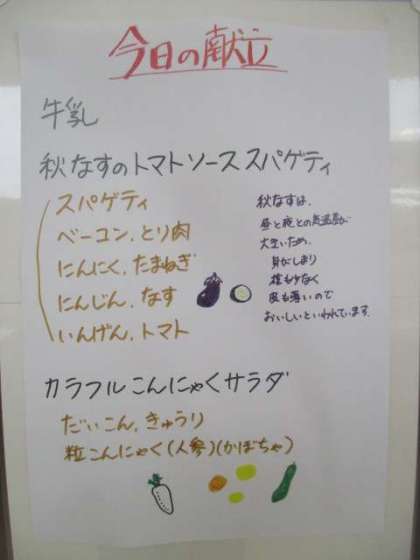 今日の献立
牛乳
秋なすのトマトソーススパゲティ
スパゲティ
ベーコン、とり肉
にんにく、たまねぎ
にんじん、なす
いんげん、トマト
秋なすは、
昼と夜との気温差が
大きいため、
身がしまり
種も少なく
皮も薄いので
おいしいといわれています。
カラフルこんにゃくサラダ
だいこん、きゅうり
粒こんにゃく(人参)(かぼちゃ)